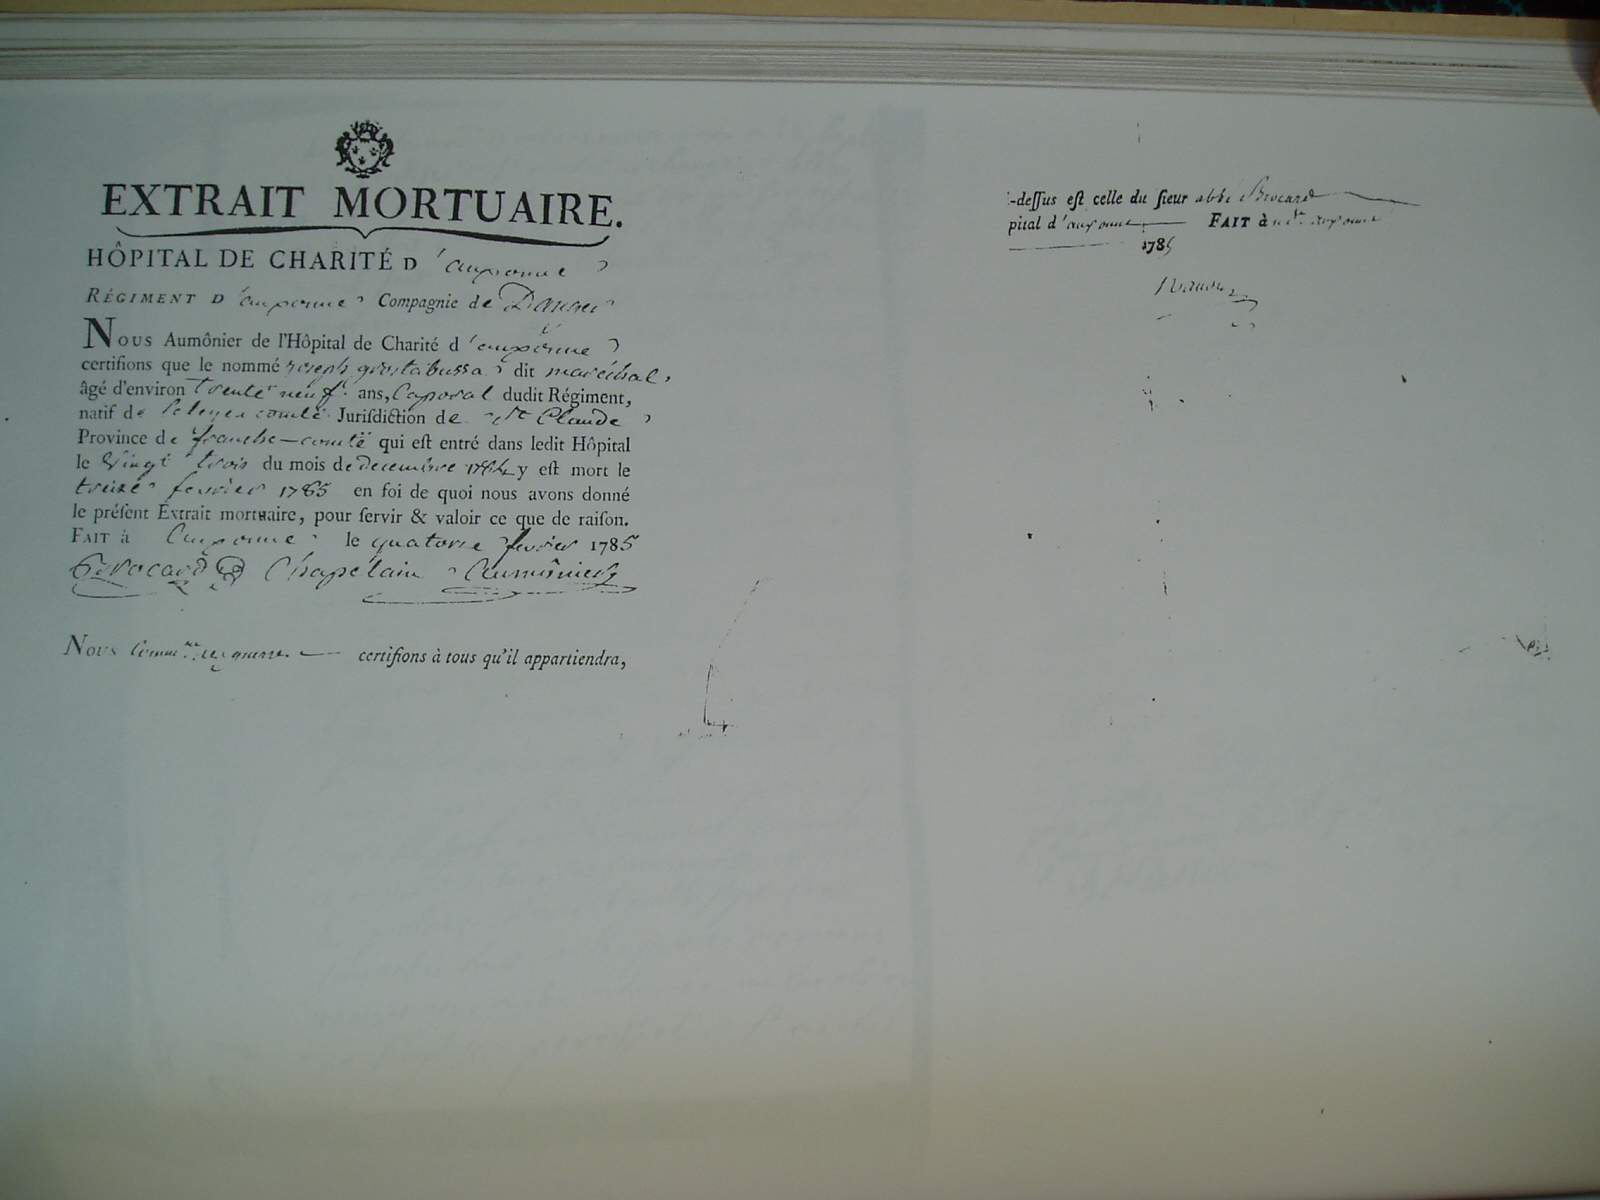 EXTRAIT MORTUAIRE.
HÔPITAL DE CHARITÉ D'auxonne
RÉGIMENT D'auxonne Compagnie de
NOUS Aumônier de l'Hôpital de Charité d'auxonne
certifions que le nommé joseph dit maréchal,
âgé d'environ trente neuf ans, Caporal dudit Régiment,
natif de Jurisdiction de St Claude
Province de franche-comté qui est entré dans ledit Hôpital
le vingt trois du mois de decembre 1784 y est mort le
treize fevrier 1785 en foi de quoi nous avons donné
le présent Extrait mortuaire, pour servir & valoir ce que de raison.
FAIT à auxonne le quatorze fevrier 1785
Brocard Chapelain aumônier
NOUS Commre des guerres certifions à tous qu'il appartiendra,
-dessus est celle du sieur abbé Brocard
pital d'auxonne FAIT à auxonne
1785